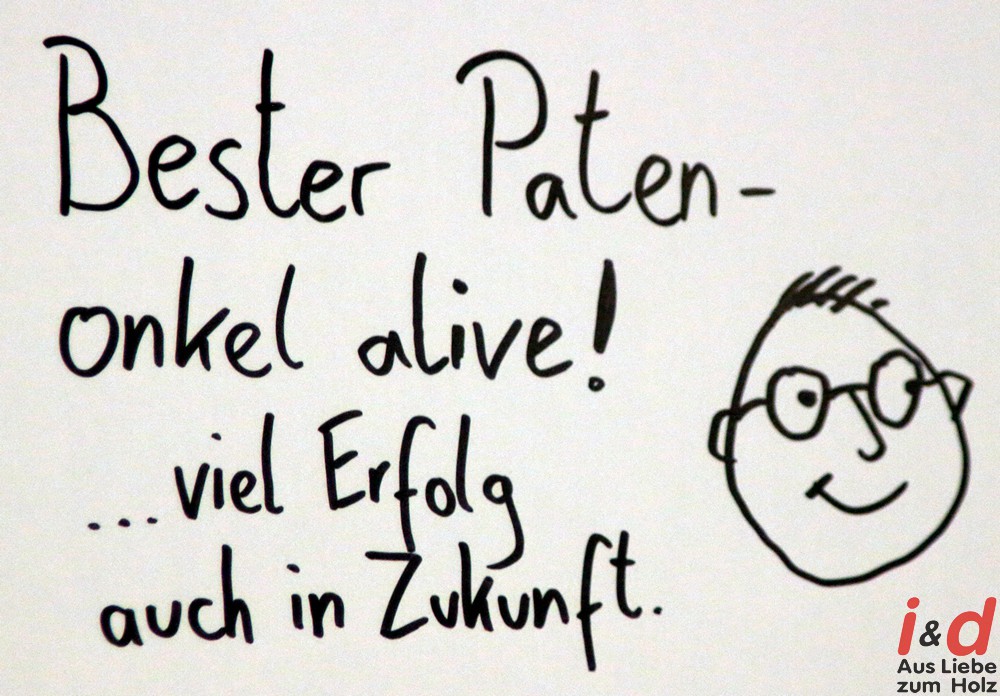 Bester Paten-
onkel alive!
...viel Erfolg
auch in Zukunft.
i&d
Aus Liebe
zum Holz